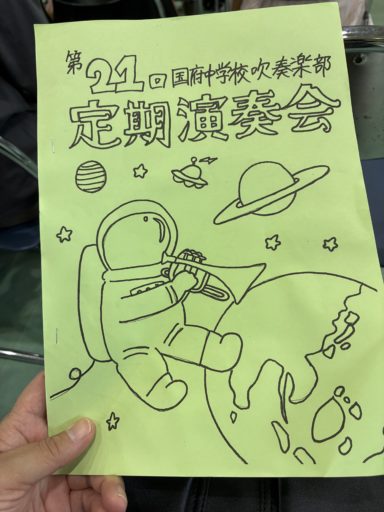 第21回国府中学校吹奏楽部
定期演奏会